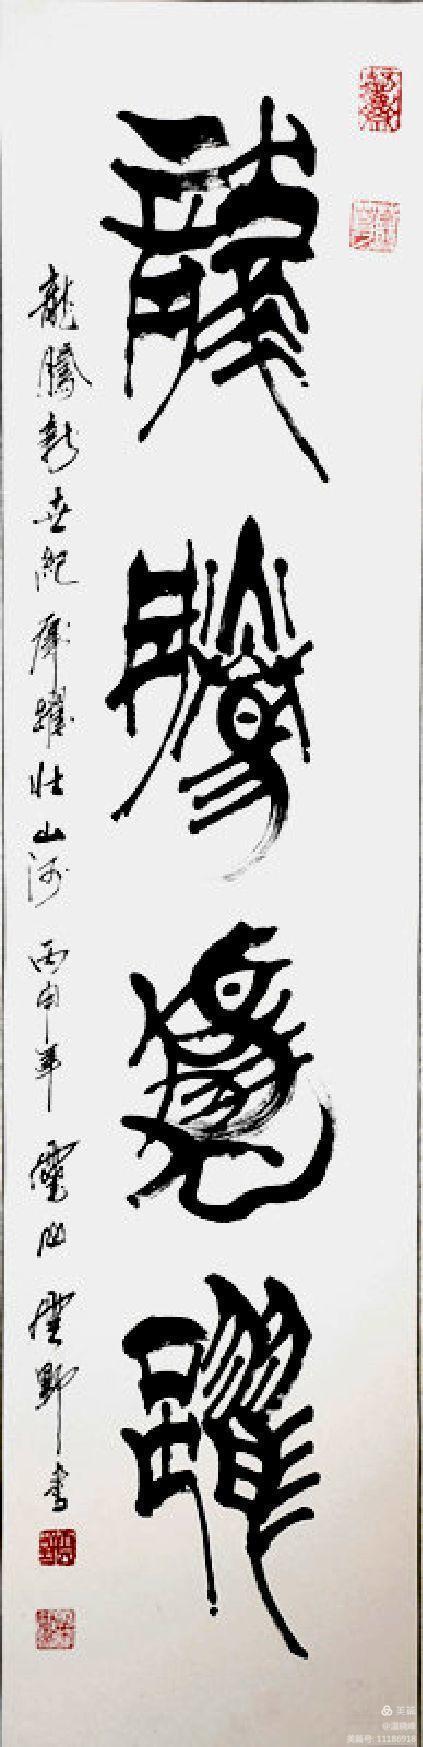 龍騰虎躍
龍騰新世紀虎躍壯山河 丙申年 靈山 野書
美篇
@温晓峰
美篇号: 11186918